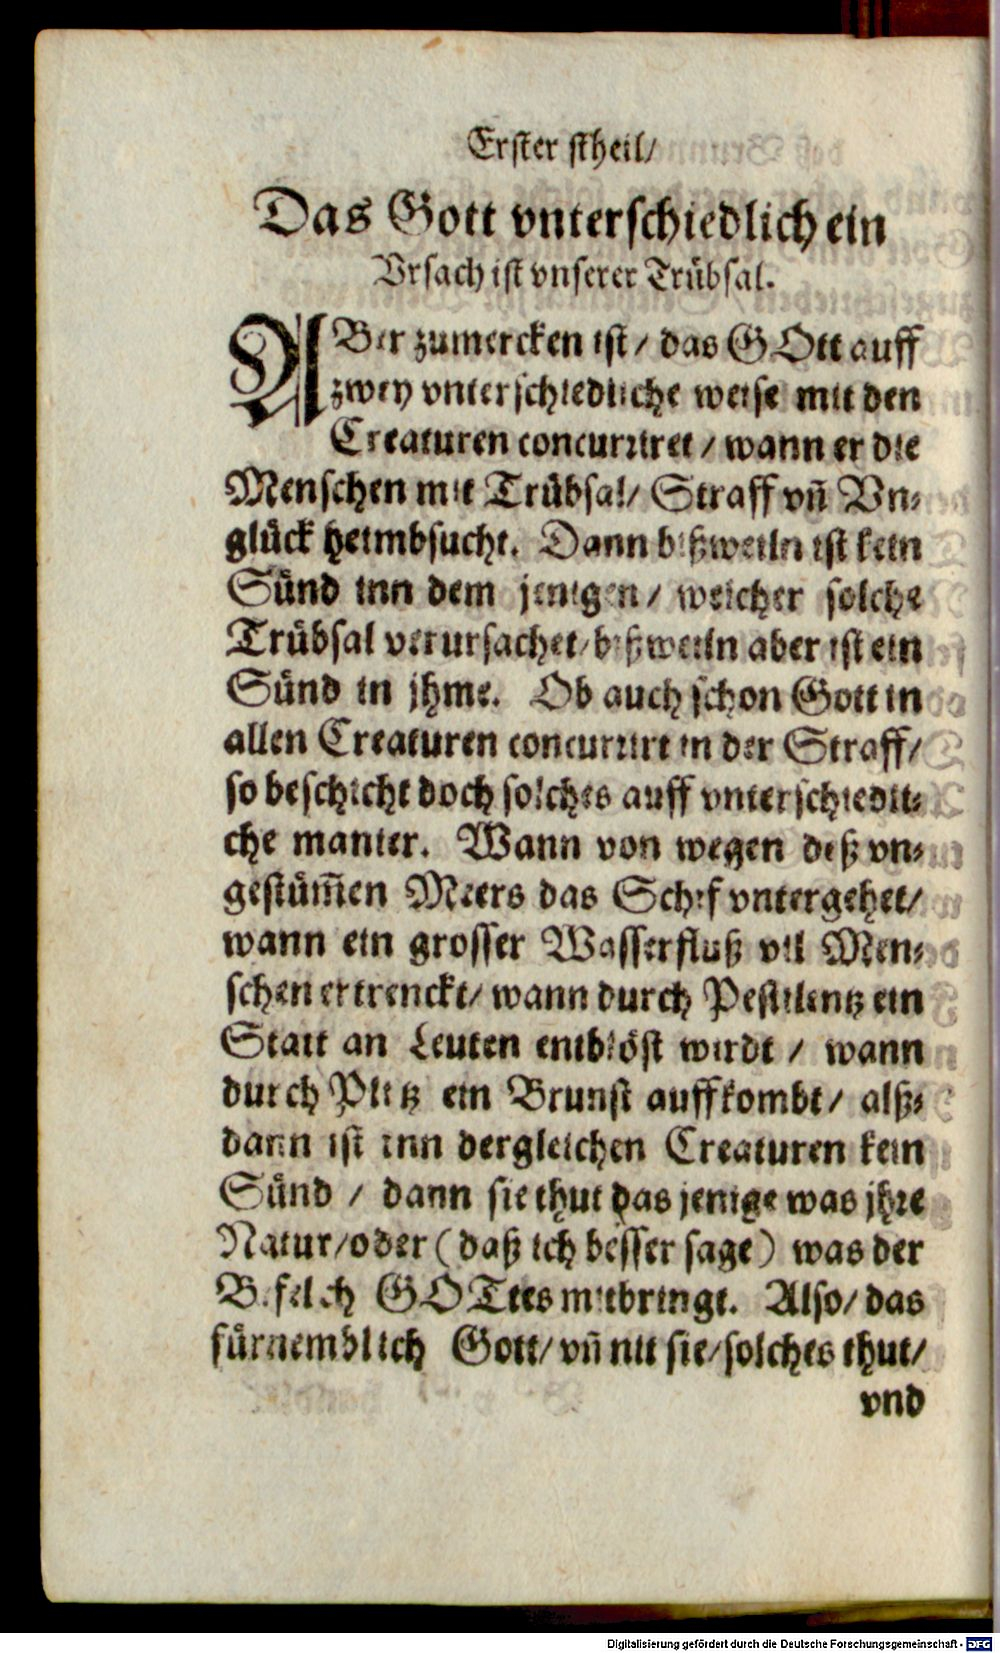 Erster stheil/
Das Gott vnterschiedlich ein
Vrsach ist vnserer Trübsal.
ABer zumercken ist / das GOtt auff
zwey vnterschiedliche weise mit den
Creaturen concurriret / wann er die
Menschen mit Trübsal/ Straff vn̄ Vn-
glück heimbsucht. Dann bißweiln ist kein
Sünd inn dem jenigen / welcher solche
Trübsal verursachet/ bißweiln aber ist ein
Sünd in jhme. Ob auch schon Gott in
allen Creaturen concurrirt in der Straff/
so beschicht doch solches auff vnterschiedli-
che manier. Wann von wegen deß vn-
gestüm̄en Meers das Schif vntergehet/
wann ein grosser Wasserfluß vil Men-
schen ertrenckt/ wann durch Pestilentz ein
Statt an Leuten entblöst wirdt / wann
durch Plitz ein Brunst auffkombt / alß-
dann ist inn dergleichen Creaturen kein
Sünd / dann sie thut das jenige was jhre
Natur/oder (daß ich besser sage) was der
Befelch GOTtes mitbringt. Also/ das
fürnemblich Gott/ vn̄ nit sie/solches thut/
vnd
Digitalisierung gefördert durch die Deutsche Forschungsgemeinschaft - DFG